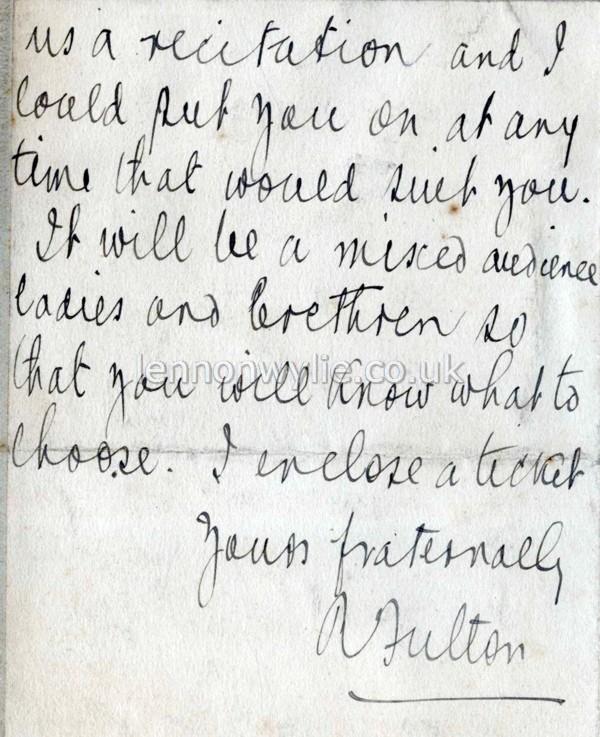 us a recitation and I
could put you on at any
time that would suit you.
It will be a mixed audience
ladies and brethren so
lennonwylie.co.uk
that you will know what to
choose. I enclose a ticket
Yours fraternally
R Fulton